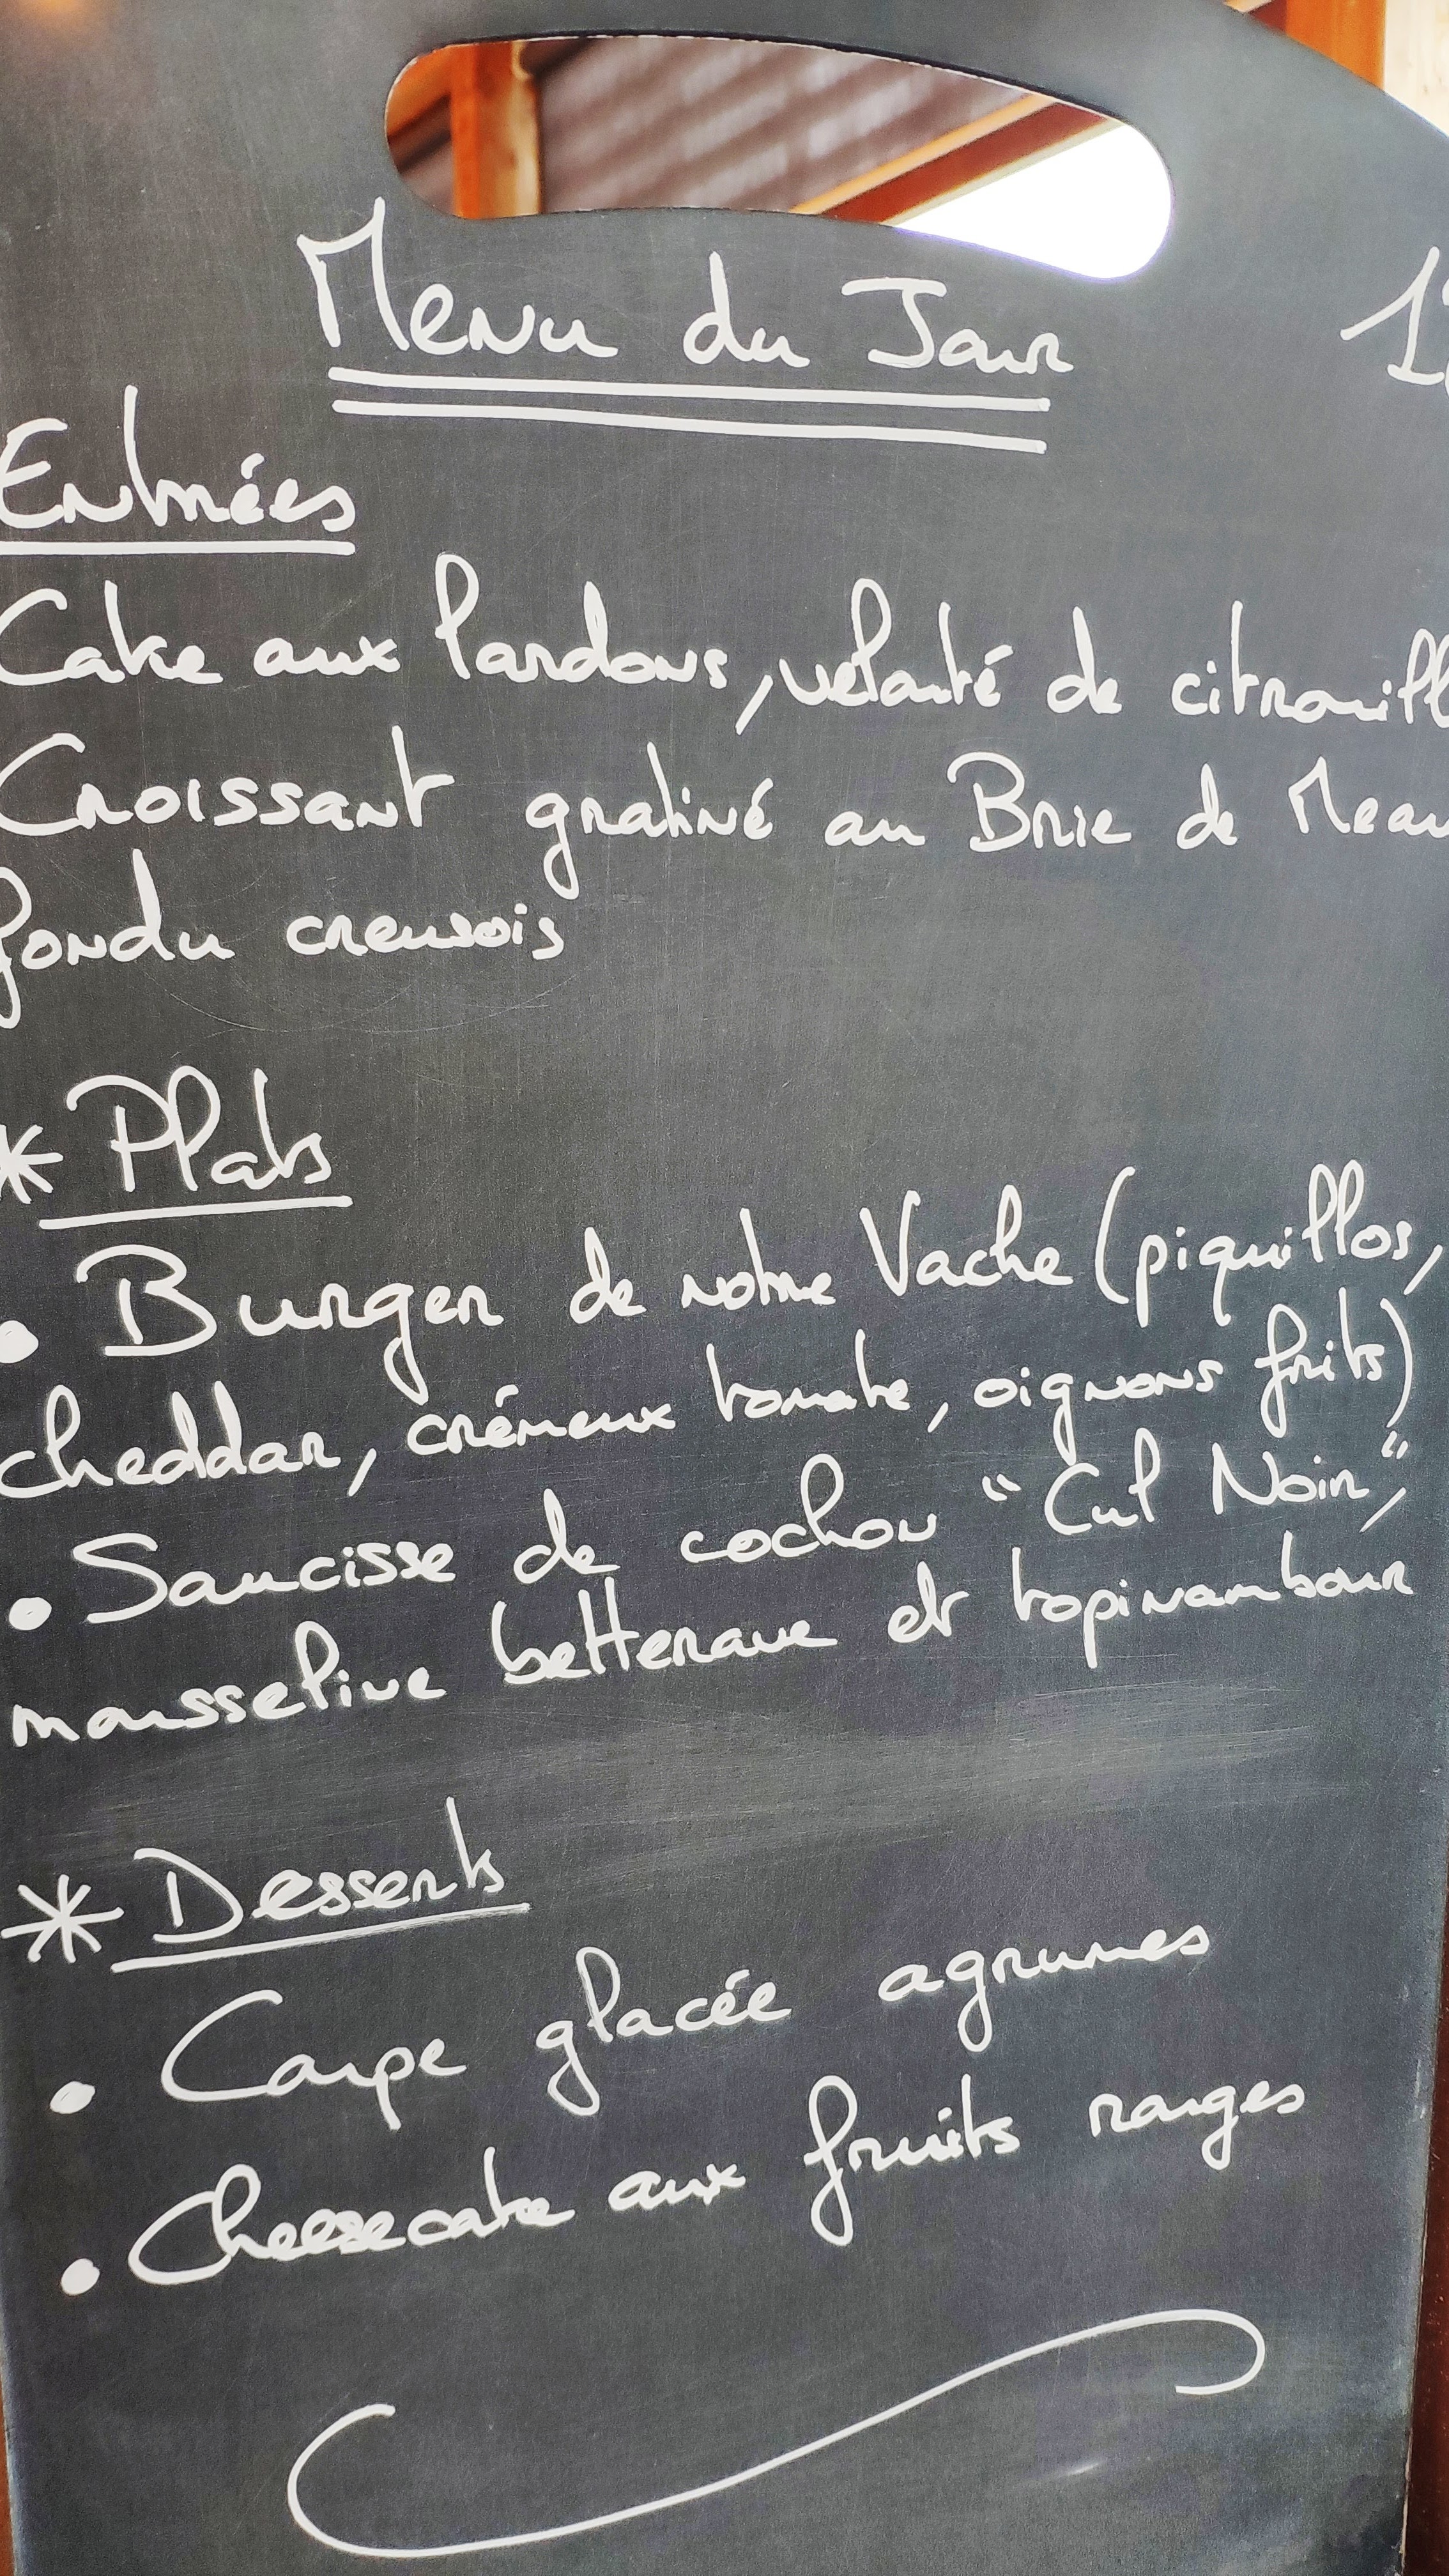 Menu du Jour
Entrées
Cake aux lardons, velouté de citrouill
Croissant gratiné au Brie de Meau
fondu creusois
* Plats
• Burger de notre Vache (piquillos,
cheddar, crémeux tomate, oignons frits)
• Saucisse de cochon "Cul Noir",
mousseline betterave et topinambour
* Desserts
• Coupe glacée agrumes
• Cheesecake aux fruits rouges